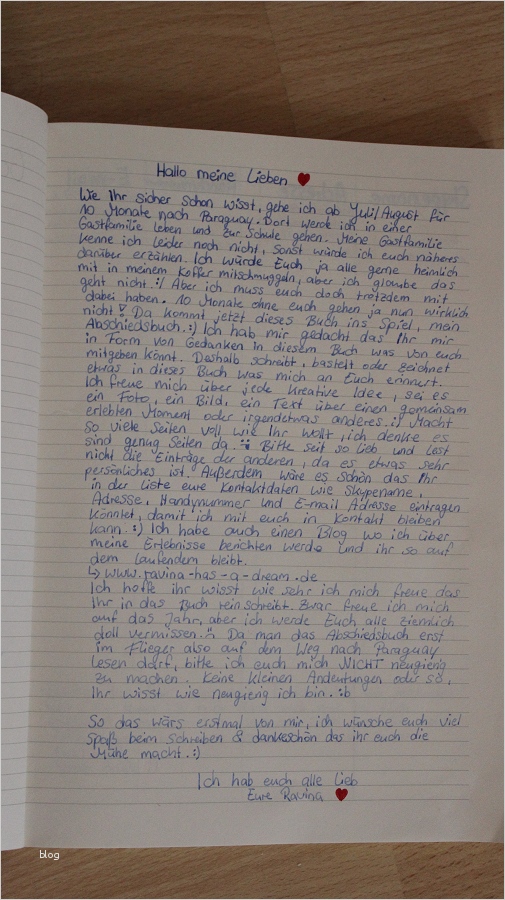 Hallo meine Lieben ♥
Wie Ihr sicher schon wisst, gehe ich ab Juli/August für
10 Monate nach Paraguay. Dort werde ich in einer
Gastfamilie leben und zur Schule gehen. Meine Gastfamilie
kenne ich leider noch nicht, sonst würde ich euch näheres
darüber erzählen. Ich würde Euch ja alle gerne heimlich
mit in meinem Koffer mitschmuggeln, aber ich glaube das
geht nicht. :/ Aber ich muss euch doch trotzdem mit
dabei haben. 10 Monate ohne euch gehen ja nun wirklich
nicht! Da kommt jetzt dieses Buch ins Spiel, mein
Abschiedsbuch. :) Ich hab mir gedacht das Ihr mir
in Form von Gedanken in diesem Buch was von euch
mitgeben könnt. Deshalb schreibt, bastelt oder zeichnet
etwas in dieses Buch was mich an Euch erinnert.
Ich freue mich über jede kreative Idee, sei es
ein Foto, ein Bild, ein Text über einen gemeinsam
erlebten Moment oder irgendetwas anderes. :) Macht
so viele Seiten voll wie Ihr wollt, ich denke es
sind genug Seiten da. Bitte seit so lieb und lest
nicht die Einträge der anderen, da es etwas sehr
persönliches ist. Außerdem wäre es schön das Ihr
in der Liste eure Kontaktdaten wie Skypename,
Adresse, Handynummer und E-mail Adresse eintragen
könntet, damit ich mit euch in Kontakt bleiben
kann. :) Ich habe auch einen Blog wo ich über
meine Erlebnisse berichten werde und ihr so auf
dem laufendem bleibt.
↳ www.ravina-has-a-dream.de
Ich hoffe ihr wisst wie sehr ich mich freue das
Ihr in das Buch rein schreibt. Zwar freue ich mich
auf das Jahr, aber ich werde Euch alle ziemlich
doll vermissen. Da man das Abschiedsbuch erst
im Flieger also auf dem Weg nach Paraguay
lesen darf, bitte ich euch mich NICHT neugierig
zu machen. Keine kleinen Andeutungen oder so,
Ihr wisst wie neugierig ich bin. :b
So das wärs erstmal von mir, ich wünsche euch viel
Spaß beim Schreiben & dankeschön das ihr euch die
Mühe macht. :)
Ich hab euch alle lieb
Eure Ravina ♥
blog